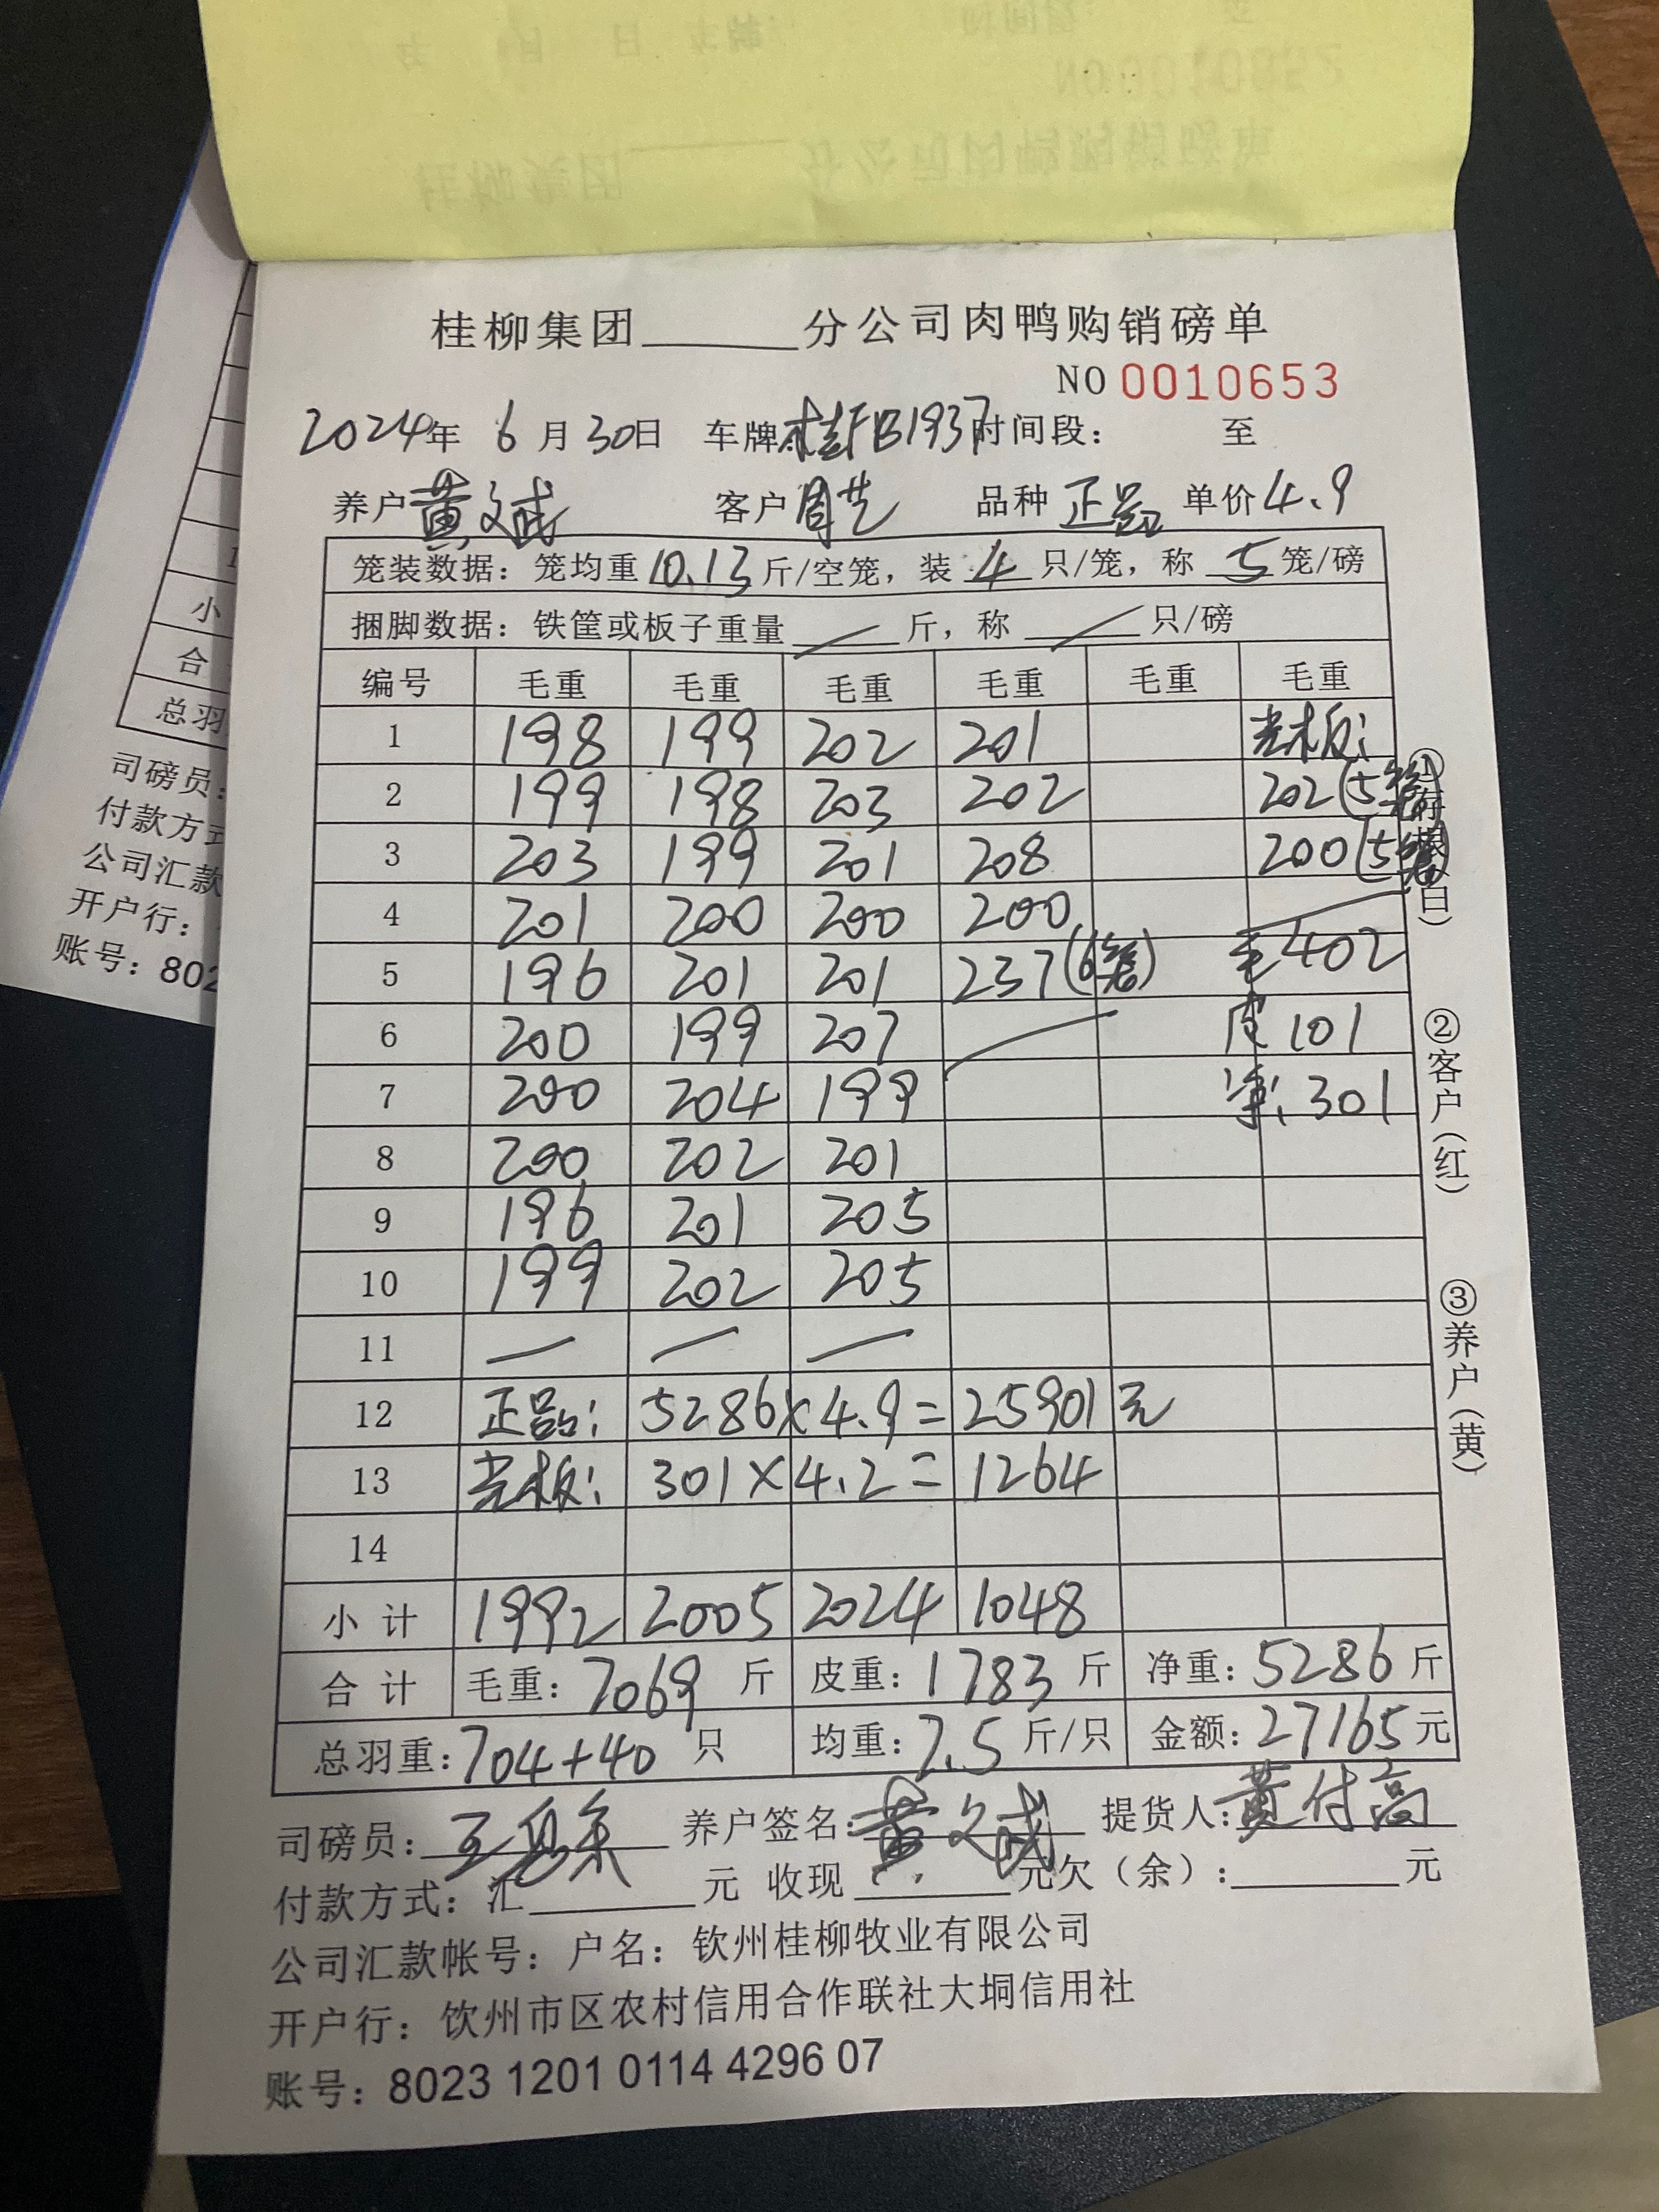 桂柳集团______分公司肉鸭购销磅单
NO 0010653
2024年 6月30日 车牌:桂FB1937 时间段: 至
养户 黄文成 客户 周芝 品种 正品 单价 4.9
笼装数据:笼均重 10.13 斤/空笼,装 4 只/笼,称 5 笼/磅
捆脚数据:铁筐或板子重量 / 斤,称 / 只/磅
编号 毛重 毛重 毛重 毛重 毛重 毛重
1 198 199 202 201 光板:
2 199 198 203 202 202(5笼)
3 203 199 201 208 200(5笼)
4 201 200 200 200
5 196 201 201 237(6笼) 毛402
6 200 199 207 皮101
7 200 204 199 净:301
8 200 202 201
9 196 201 205
10 199 202 205
11 — — —
12 正品: 5286×4.9=25901元
13 光板: 301×4.2=1264
14
小计 1992 2005 2024 1048
合计 毛重:7069斤 皮重:1783斤 净重:5286斤
总羽重:704+40只 均重:7.5斤/只 金额:27165元
司磅员: 养户签名:黄文成 提货人:黄付高
付款方式:汇______元 收现______元欠(余):______元
公司汇款帐号:户名:钦州桂柳牧业有限公司
开户行:饮州市区农村信用合作联社大垌信用社
账号:8023 1201 0114 4296 07
①存根(白)
②客户(红)
③养户(黄)
小
合
总羽
司磅员:
付款方式
公司汇款
开户行:
账号:802